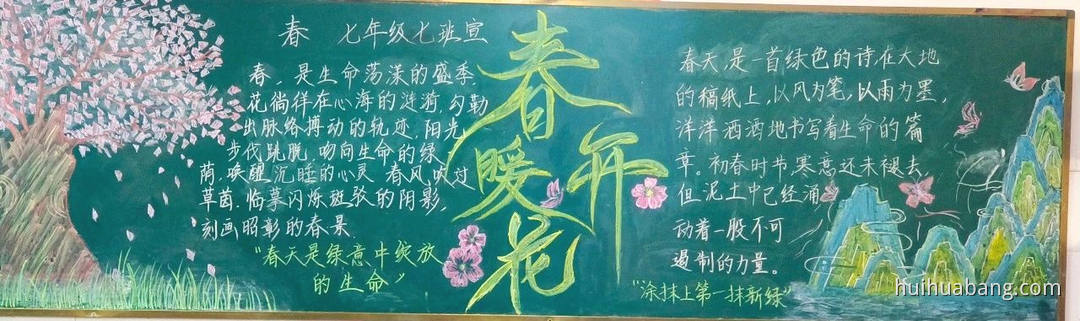 春 七年级七班宣
春，是生命荡漾的盛季，
花徜徉在心海的涟漪，勾勒
出脉络搏动的轨迹，阳光
步伐跳脱，吻向生命的绿
荫，唤醒沉睡的心灵，春风吹过
草茵，临摹闪烁斑驳的阴影，
刻画昭彰的春景。
“春天是绿意中绽放
的生命”
春
暖
花
开
春天，是一首绿色的诗，在大地
的稿纸上，以风为笔，以雨为墨，
洋洋洒洒地书写着生命的篇
章。初春时节，寒意还未褪去，
但泥土中已经涌
动着一股不可
遏制的力量。
“涂抹上第一抹新绿”
huihuabang.com